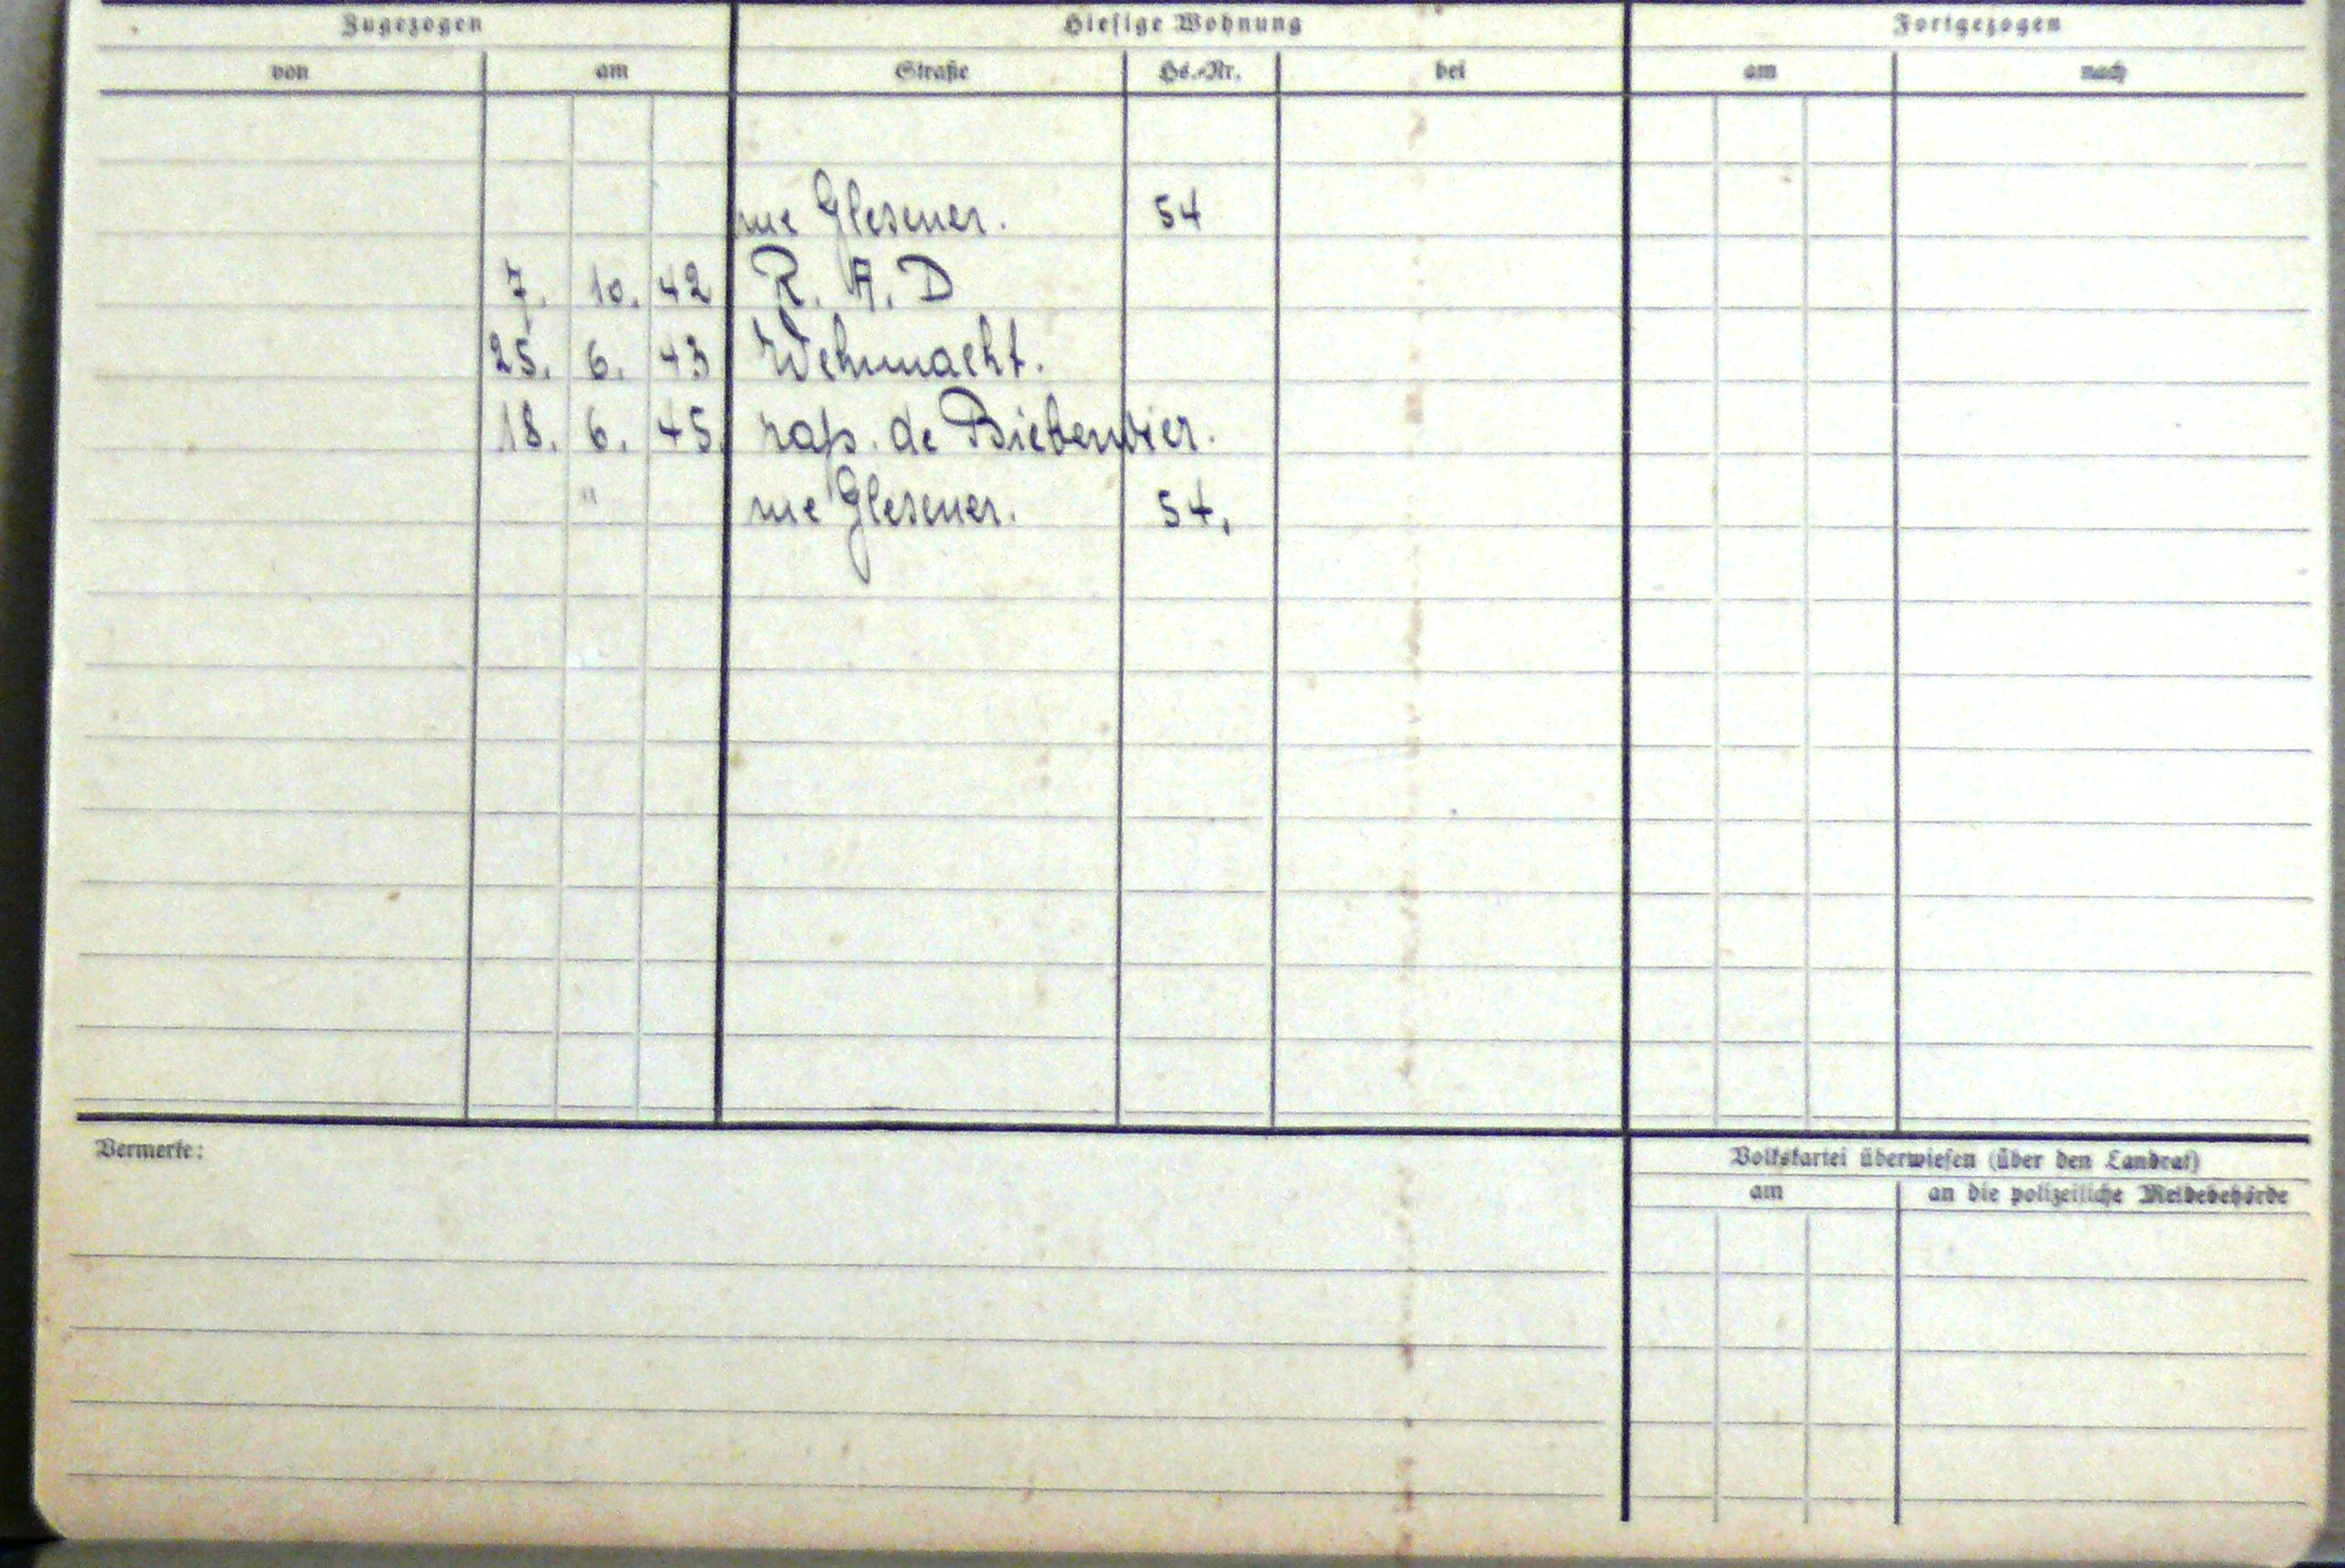 Zugezogen Hiesige Wohnung Fortgezogen
von am Straße Hs.-Nr. bei am nach
rue Glesener. 54
7. 10. 42 R. A. D
25. 6. 43 Wehrmacht.
18. 6. 45. rap. de
" rue Glesener. 54.
Vermerke:
Volkskartei überwiesen (über den Landrat)
am an die polizeiliche Meldebehörde